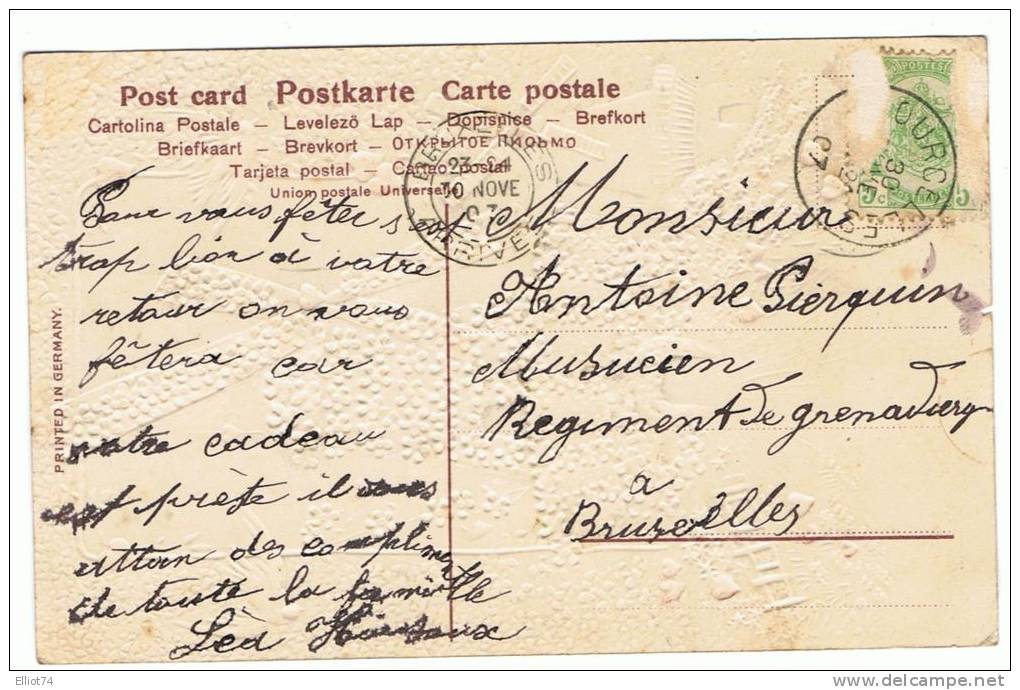 Post card Postkarte Carte postale
Cartolina Postale – Levelezö Lap – Dopisnice – Brefkort
Briefkaart – Brevkort – ОТКРЫТОЕ ПИСЬМО
Tarjeta postal – Cartao postal
Union postale Universelle
BRUXELLES
23-24
30 NOVE
07
ARRIVEE
POSTES
5c
OURCG
30
07
PRINTED IN GERMANY.
Pour vous fêter s'est
trop lion à votre
retour on vous
fêtera car
votre cadeau
est prète il vous
attan des compliment
de toute la famille
Lèa
Monsieur
Antoine Pierquin
Musucien
Regiment de grenadiers
a
Bruxelles
Elliot74
www.delcampe.net